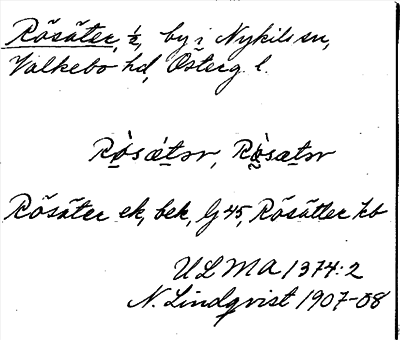 Rösäter, ½, by i Nykils sn,
Valkebo hd, Österg. l.
Rò̱sæ̀tər, Rò̤sætər
Rösäter ek, bek, Gj 45, Rösätter kb
ULMA 1374:2
N. Lindqvist 1907-08